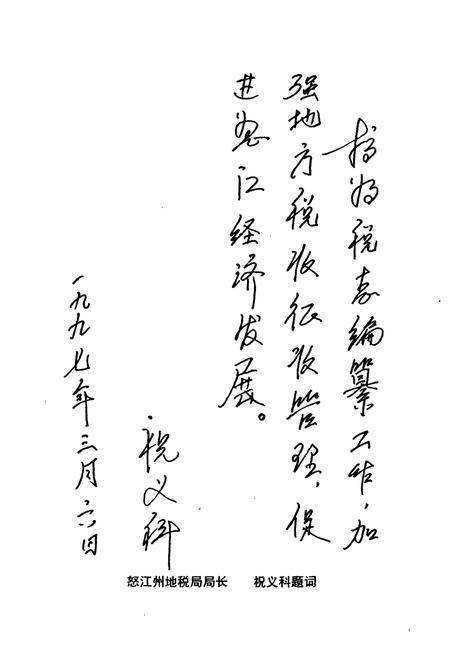 搞好税志编纂工作，加
强地方税收征收管理，促
进怒江经济发展。
祝义科
一九九七年三月六日
怒江州地税局局长 祝义科题词